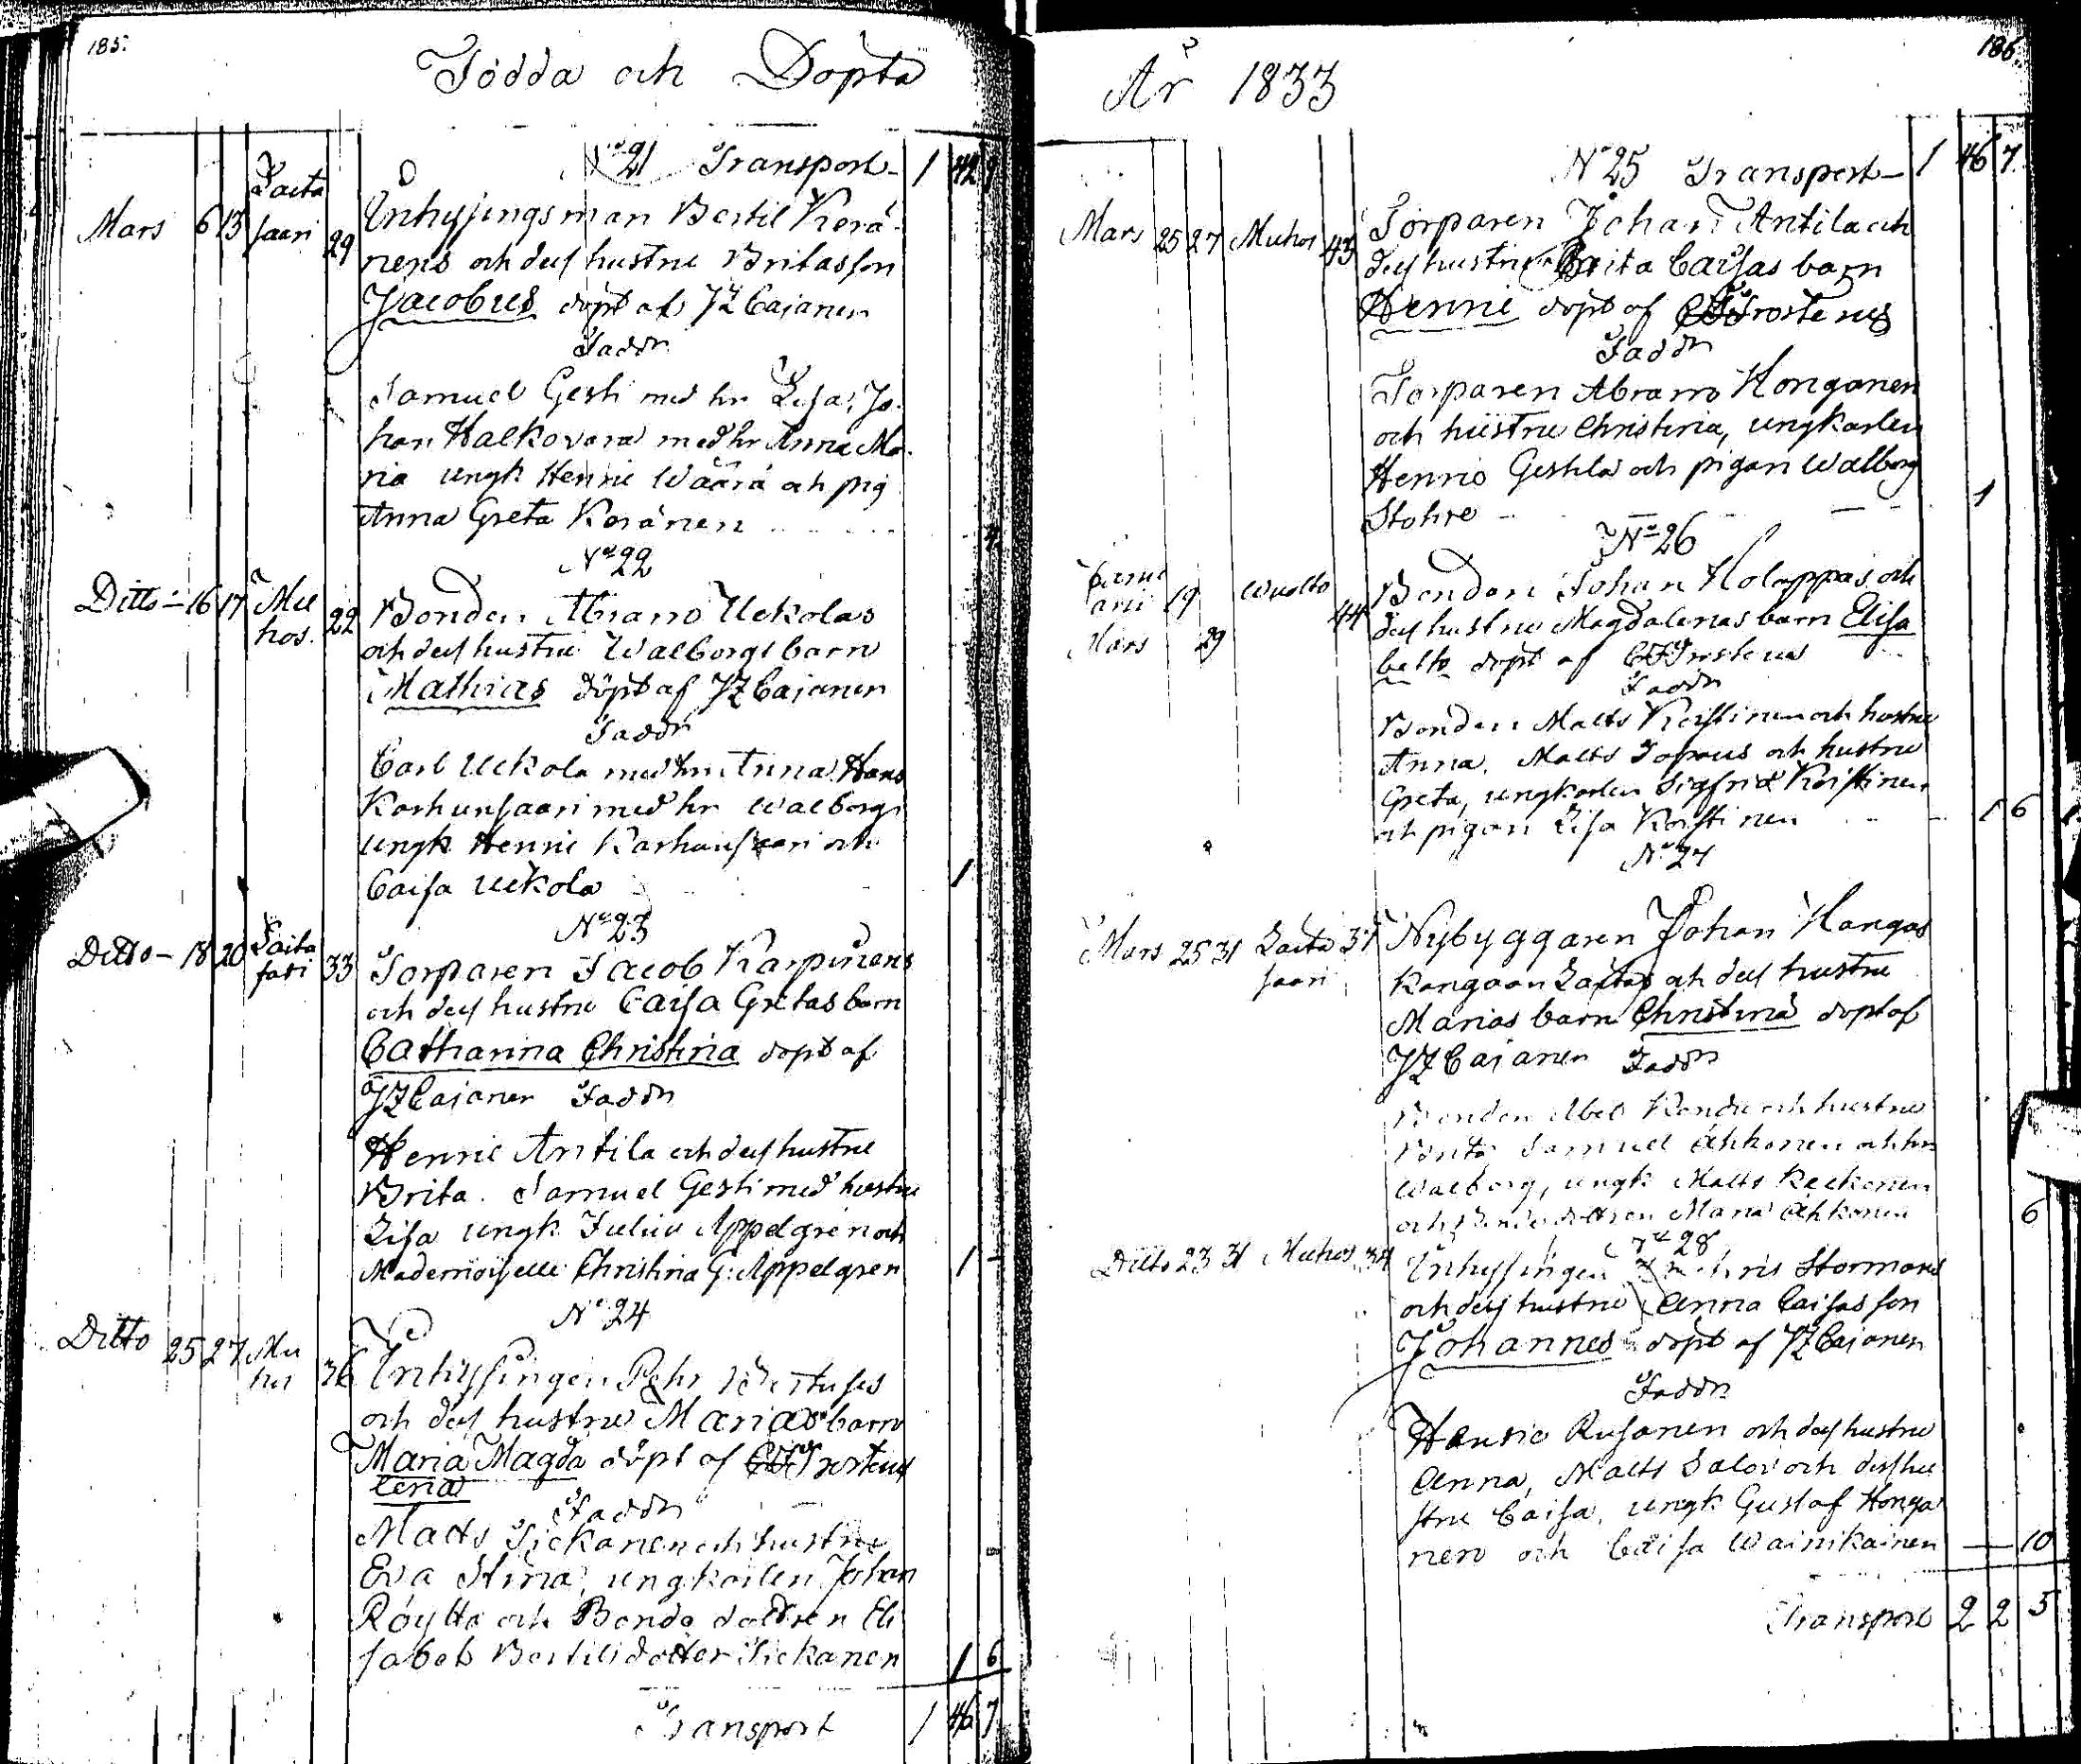 185.
Födda och Döpta
No 21 Transport 1 42 9
Mars 6 13 Laita
saari 29
Inhysingsman Bertil Kerä-
nens och dess hustru Britas son
Jacobus döpt af JZ Cajanen
Faddr
Samuel Gesti med hr Lisa, Jo-
han Halkovara med hr Anna Ma-
ria ungk Henric Wäärä och pig
Anna Greta Keränen 4
No 22
Ditto 16 17 Mu
hos. 22
Bonden Abram Uckolas
och dess hustru Walborgs barn
Mathias döpt af JZ Cajanen
Faddr
Carl Uckola med hru Anna Hans
Karhunsaari med hr Walborg
ungk Henric Karhunsaari och
Caisa Uckola 1
No 23
Ditto 18 20 Laita
sari 33
Torparen Jacob Karpinens
och dess hustru Caisa Gretas barn
Catharina Christina döpt af
JZ Cajanen Faddr
Henric Antila och dess hustru
Brita. Samuel Gesti med hustru
Lisa ungk Julius Appelgren och
Mademoiselle Christina G: Appelgren 1 -
No 24
Ditto 25 27 Mu
hos 36
Inhysingen Pehr
och dess hustru Marias barn
Maria Magda döpt af CF Frosterus
lena
Faddr
Matts Tickanen och hustru
Eva Stina, ungkarlen Johan
Röytta och Bonde dottren Eli
sabet Bertilsdotter Tickanen 1 6
Transport 1 46 7
186.
År 1833
No 25 Transport 1 46 7
Mars 25 27 Muhos 43
Torparen Johan Antila och
dess hustru Brita Caisas barn
Henric döpt af CF Frosterus
Faddr
Torparen Abram Honganen
och hustru Christina, ungkarlen
Henric Gestila och pigan Walborg
Stohre 1
No 26
19 Wuolto 44
Mars 29
Bonden Johan Holappas och
dess hustru Magdalenas barn Elisa
beth döpt af CF Frosterus
Faddr
Bonden Matts Keistinen och hustru
Anna. Matts och hustru
Greta, ungkarlen Sigfrid Keistinen
och pigan Lisa Keistinen 1 6
No 27
Mars 25 31 Laita
saari 37
Nybyggaren Johan Kangas
Kangaan Laitas och dess hustru
Marias barn Christina döpt af
JZ Cajanen Faddr
Bonden Abel och hustru
Brita Samuel Ahkonen och hru
Walborg, ungk Matts Keckonen
och Bondedottren Maria Ahkonen 6
No 28
Ditto 23 31 Muhos 34
Inhysingen Stormans
och dess hustru Anna Caisas son
Johannes döpt af JZ Cajanen
Faddr
Henric Rusanen och dess hustru
Anna, Matts Salo och dess hu
stru Caisa, ungk Gustaf Honga
nen och Caisa Wainikainen 10
Transport 2 2 5